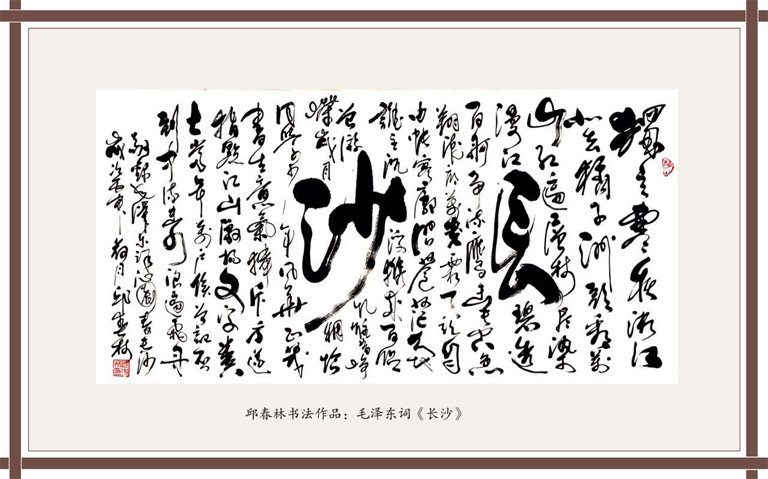 长沙
独立寒秋湘江
北去橘子洲头看万
山红遍层林尽染
漫江碧透
百舸争流鹰击长空鱼
翔浅底万类霜天竞自
由怅寥廓问苍茫大地
谁主沉浮携来百侣
曾游忆往昔峥
嵘岁月稠恰
同学少年风华正茂
书生意气挥斥方遒
指点江山激扬文字粪
土当年万户侯曾记否
到中流击水浪遏飞舟
毛泽东词沁园春长沙
邱春林
邱春林书法作品：毛泽东词《长沙》